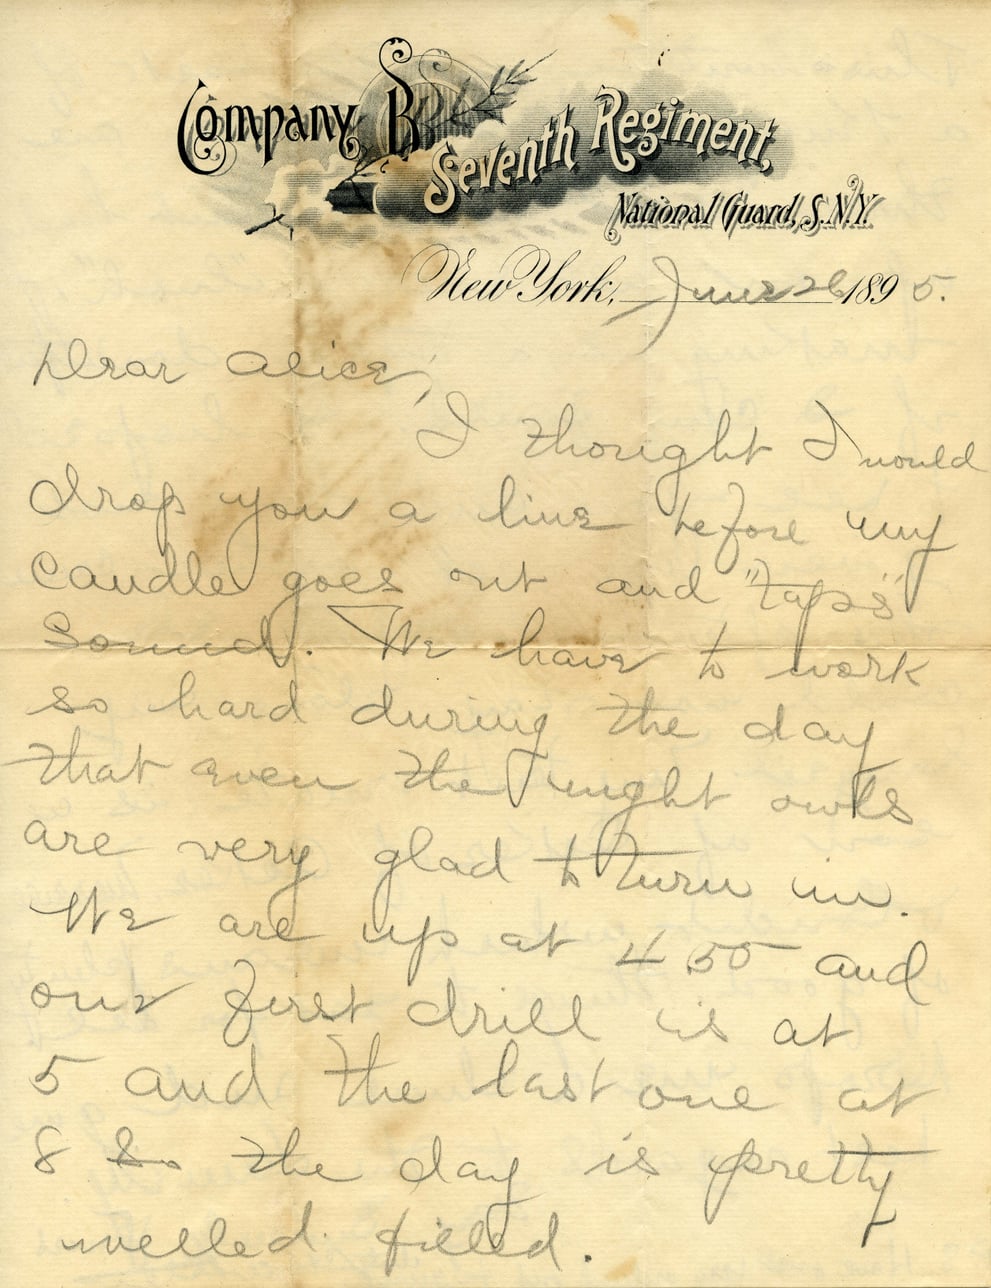 Company B
Seventh Regiment,
National Guard, S.N.Y.
New York, June 26 1895.
Dear Alice,
I thought I would
drop you a line before my
candle goes out and "taps"
sound. We have to work
so hard during the day
that even the night owls
are very glad to turn in.
We are up at 4 55 and
our first drill is at
5 and the last one at
8 So the day is pretty
welled filled.